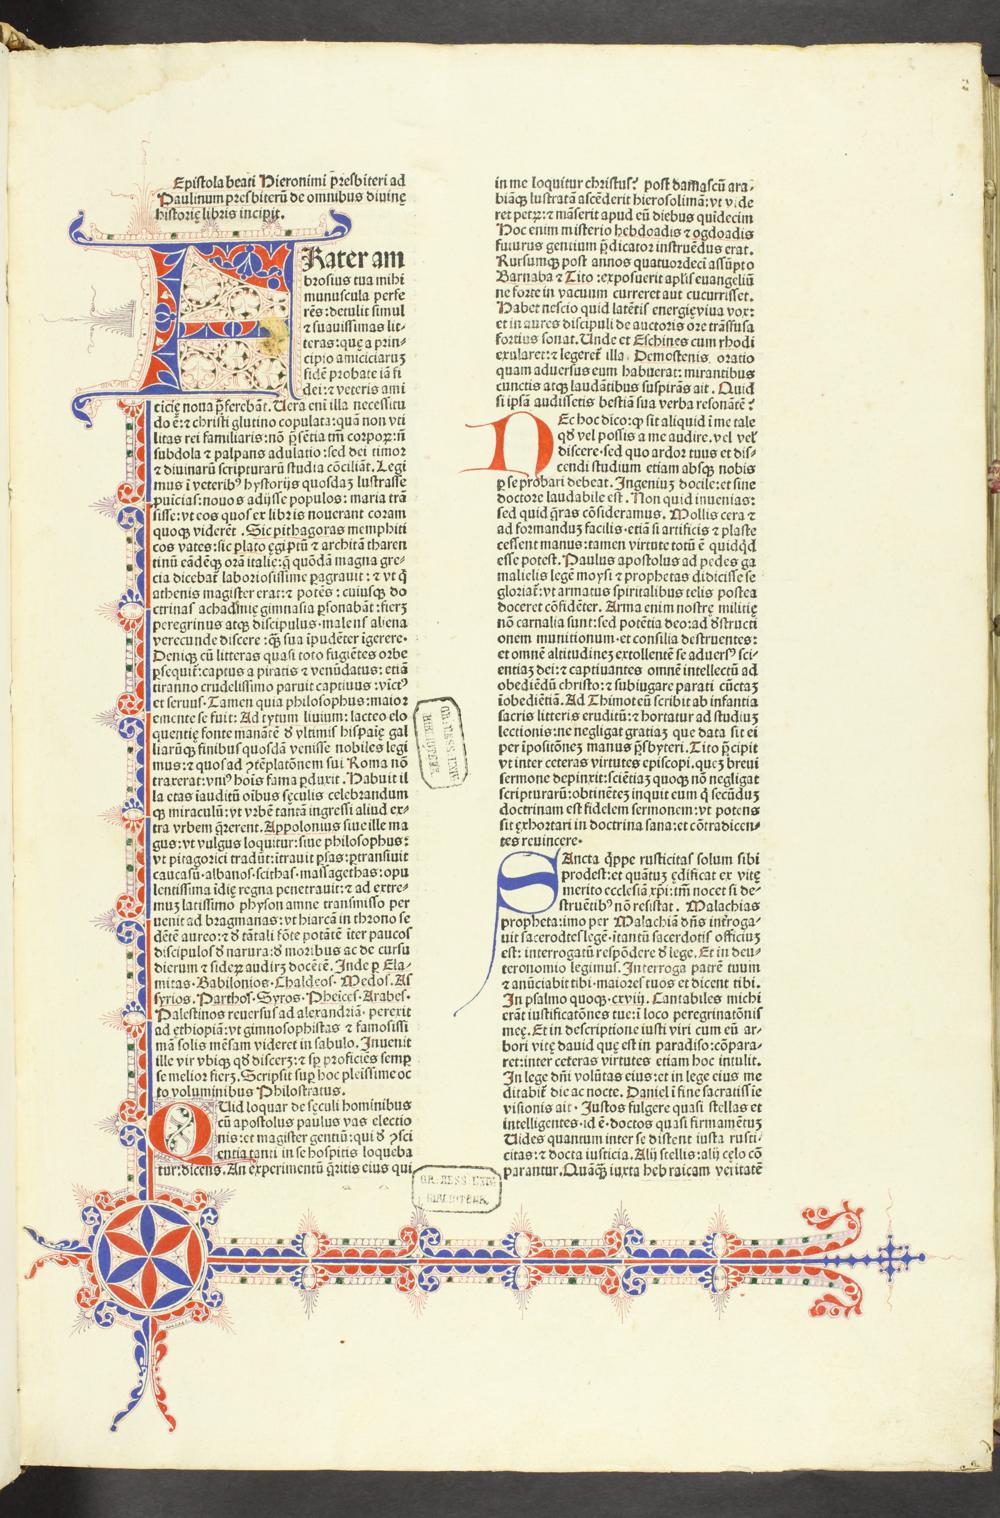 Epistola beati Hieronimi p̄resbiteri ad
Paulinum presbiterū de omnibus diuinę
historię libris incipit.
FRater am
brosius tua mihi
munuscula perfe
rēs: detulit simul
⁊ suauissimas lit⸗
teras: quę a prin⸗
cipio amiciciaruꝫ
fidē probate iā fi
dei: ⁊ veteris ami
ticię noua p̄ferebāt. Uera eni illa necessitu
do ē: ⁊ christi glutino copulata: quā non vti
litas rei familiaris: nō p̄sētia tm̄ corpoꝝ: n̄
subdola ⁊ palpans adulatio: sed dei timor
⁊ diuinarū scripturarū studia cōciliāt. Legi
mus ī veterib⁹ hystorijs quosdaꝫ lustrasse
puīcias: nouos adijsse populos: maria trā
sisse: vt eos quos ex libris nouerant coram
quoqꝫ viderēt. Sic pithagoras memphiti
cos vates: sic plato ęgiptū ⁊ architā tharen
tinū eādēqꝫ orā italie: q̄ quōdā magna gre⸗
cia dicebat̄ laboriosissime ꝑagrauit: ⁊ vt q̄
athenis magister erat: ⁊ potēs: cuiusqꝫ do
ctrinas achademię gimnasia ꝑsonabāt: fierꝫ
peregrinus atqꝫ discipulus· malens aliena
verecunde discere: q̄ꝫ sua īpudēter īgerere·
Deniqꝫ cū litteras quasi toto fugiētes orbe
ꝑsequit̄: captus a piratis ⁊ venūdatus: etiā
tiranno crudelissimo paruit captiuus: vīct⁹
et seruus· Tamen quia philosophus: maior
emente se fuit: Ad tytum liuium: lacteo elo
quentię fonte manātē ꝺ vltimis hispaīę gal
liarūqꝫ finibus quosdā venisse nobiles legi
mus: ⁊ quos ad ꝯtēplatōnem sui Roma nō
traxerat: vni⁹ hoīs fama ꝑduxit. Habuit il
la etas īauditū oībus sęculis celebrandum
qꝫ miraculū: vt vrbē tantā ingressi aliud ex⸗
tra vrbem q̄rerent. Appolonius siue ille ma
gus: vt vulgus loquitur: siue philosophus:
vt pitagorici tradūt: ītrauit ꝑsas: ꝑtransiuit
caucasū· albanos· scithas· massagethas: opu
lentissima īdię regna penetrauit: ⁊ ad extre⸗
muꝫ latissimo physon amne transmisso per
uenit ad bragmanas: vt hiarcā in throno se
dētē aureo: ⁊ ꝺ tātali fōte potātē īter paucos
discipulos ꝺ narura: ꝺ moribus ac de cursu
dierum ⁊ sideꝝ audirꝫ docētē. Inde ꝑ Ela⸗
mitas· Babilonios· Chaldeos· Medos. As
syrios. Parthos· Syros· Pheīces· Arabes·
Palestinos reuersus ad alexandriā· perexit
ad ethiopiā: vt gimnosophistas ⁊ famosissi
mā solis mēsam videret in sabulo. Inuenit
ille vir vbiqꝫ qꝺ discerꝫ: ⁊ sꝑ proficiēs semꝑ
se melior fierꝫ. Scripsit suꝑ hoc pleīssime oc
to voluminibus Philostratus.
QUid loquar de sęculi hominibus
cū apostolus paulus vas electio
nis: et magister gentiū: qui ꝺ ꝯsci
entia tanti in se hospitis loqueba
tur: dicens. An experimentū q̄ritis eius qui
in me loquitur christus? post damascū ara⸗
biāqꝫ lustratā ascēderit hierosolimā: vt vide
ret petꝝ: ⁊ māserit apud eū diebus quīdecim
Hoc enim misterio hebdoadis ⁊ ogdoadis
futurus gentium p̄dicator instruēdus erat.
Rursumqꝫ post annos quatuordecī assūpto
Barnaba ⁊ Tito: exposuerit aplīs euangeliū
ne forte in vacuum curreret aut cucurrisset.
Habet nescio quid latētis energię viua vox:
et in aures discipuli de auctoris ore trāsfusa
fortius sonat. Unde et Eschines cum rhodi
exularet: ⁊ legeret̄ illa Demostenis oratio
quam aduersus eum habuerat: mirantibus
cunctis atqꝫ laudātibus suspirās ait. Quid
si ipsā audissetis bestiā sua verba resonātē?
NEc hoc dico: ꝙ sit aliquid ī me tale
qꝺ vel possis a me audire. vel vel̄
discere· sed quo ardor tuus et dis⸗
cendi studium etiam absqꝫ nobis
ꝑ se probari debeat. Ingeniuꝫ docile: et sine
doctore laudabile est. Non quid inuenias:
sed quid q̄ras cōsideramus. Mollis cera ⁊
ad formanduꝫ facilis· etiā si artificis ⁊ plaste
cessent manus: tamen virtute totū ē quidq̄d
esse potest. Paulus apostolus ad pedes ga
malielis legē moysi ⁊ prophetas didicisse se
gloriat̄: vt armatus spiritalibus telis postea
doceret cōfidēter. Arma enim nostrę militię
nō carnalia sunt: sed potētia deo: ad ꝺstructi
onem munitionum· et consilia destruentes:
et omnē altitudineꝫ extollentē se aduers⁹ sci⸗
entiaꝫ dei: ⁊ captiuantes omnē intellectū ad
obediēdū christo: ⁊ subiugare parati cūctaꝫ
īobediētiā. Ad Thimoteū scribit ab infantia
sacris litteris eruditū: ⁊ hortatur ad studiuꝫ
lectionis: ne negligat gratiaꝫ que data sit ei
per īpositōneꝫ manus p̄sbyteri. Tito p̄cipit
vt inter ceteras virtutes episcopi. queꝫ breui
sermone depinxit: sciētiaꝫ quoqꝫ nō negligat
scripturarū: obtinēteꝫ inquit eum q̄ secūduꝫ
doctrinam est fidelem sermonem: vt potens
sit exhortari in doctrina sana: et cōtradicen⸗
tes reuincere·
SAncta q̄ppe rusticitas solum sibi
prodest: et quātuꝫ ędificat ex vitę
merito ecclesiā xp̄i: tm̄ nocet si de⸗
struētib⁹ nō resistat. Malachias
propheta: imo per Malachiā dn̄s inrroga⸗
uit sacerodtes legē· itantū sacerdotis officiuꝫ
est: interrogatū respōdere ꝺ lege. Et in deu⸗
teronomio legimus. Interroga patrē tuum
⁊ anūciabit tibi· maiores tuos et dicent tibi.
In psalmo quoqꝫ· cxviij. Cantabiles michi
erāt iustificatōnes tue: ī loco peregrinatōnis
meę. Et in descriptione iusti viri cum eū ar⸗
bori vitę dauid quę est in paradiso: cōpara⸗
ret: inter ceteras virtutes etiam hoc intulit.
In lege dn̄i volūtas eius: et in lege eius me
ditabit̄ die ac nocte. Daniel ī fine sacratissīe
visionis ait· Justos fulgere quasi stellas et
intelligentes· id ē· doctos quasi firmamētuꝫ
Uides quantum inter se distent iusta rusti⸗
citas: ⁊ docta iusticia. Alij stellis: alij cęlo cō
parantur. Quāqꝫ iuxta hebraicam veritatē
GR. HESS. UNIV
BIBLIOTEK.
GR. HESS. UNIV
BIBLIOTEK.